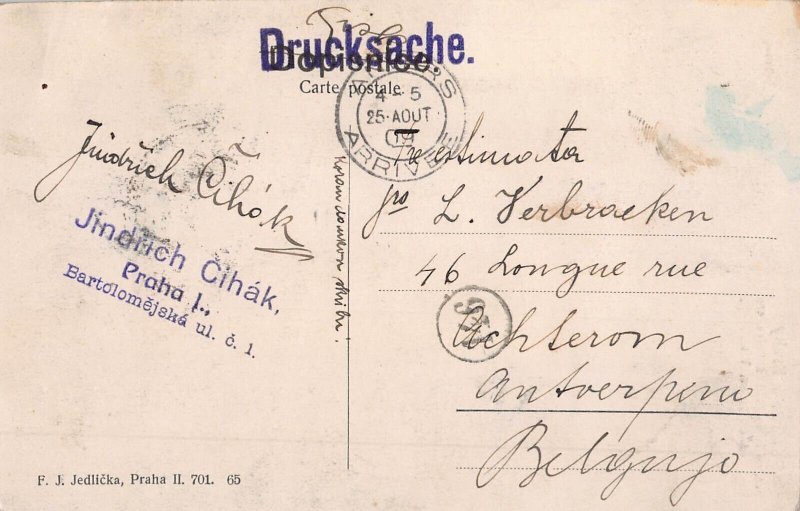 Drucksache.
Dopisnice.
Carte postale.
ANVERS
4-5
25·AOUT
09
ARRIVÉE
Jindřich Čihák
Jindřich Čihák,
Praha I.,
Bartolomějská ul. č. 1.
Estimata
jro L. Verbraeken
46 Longue rue
Achterom
Antverpeno
Belgujo
F. J. Jedlička, Praha II. 701. 65